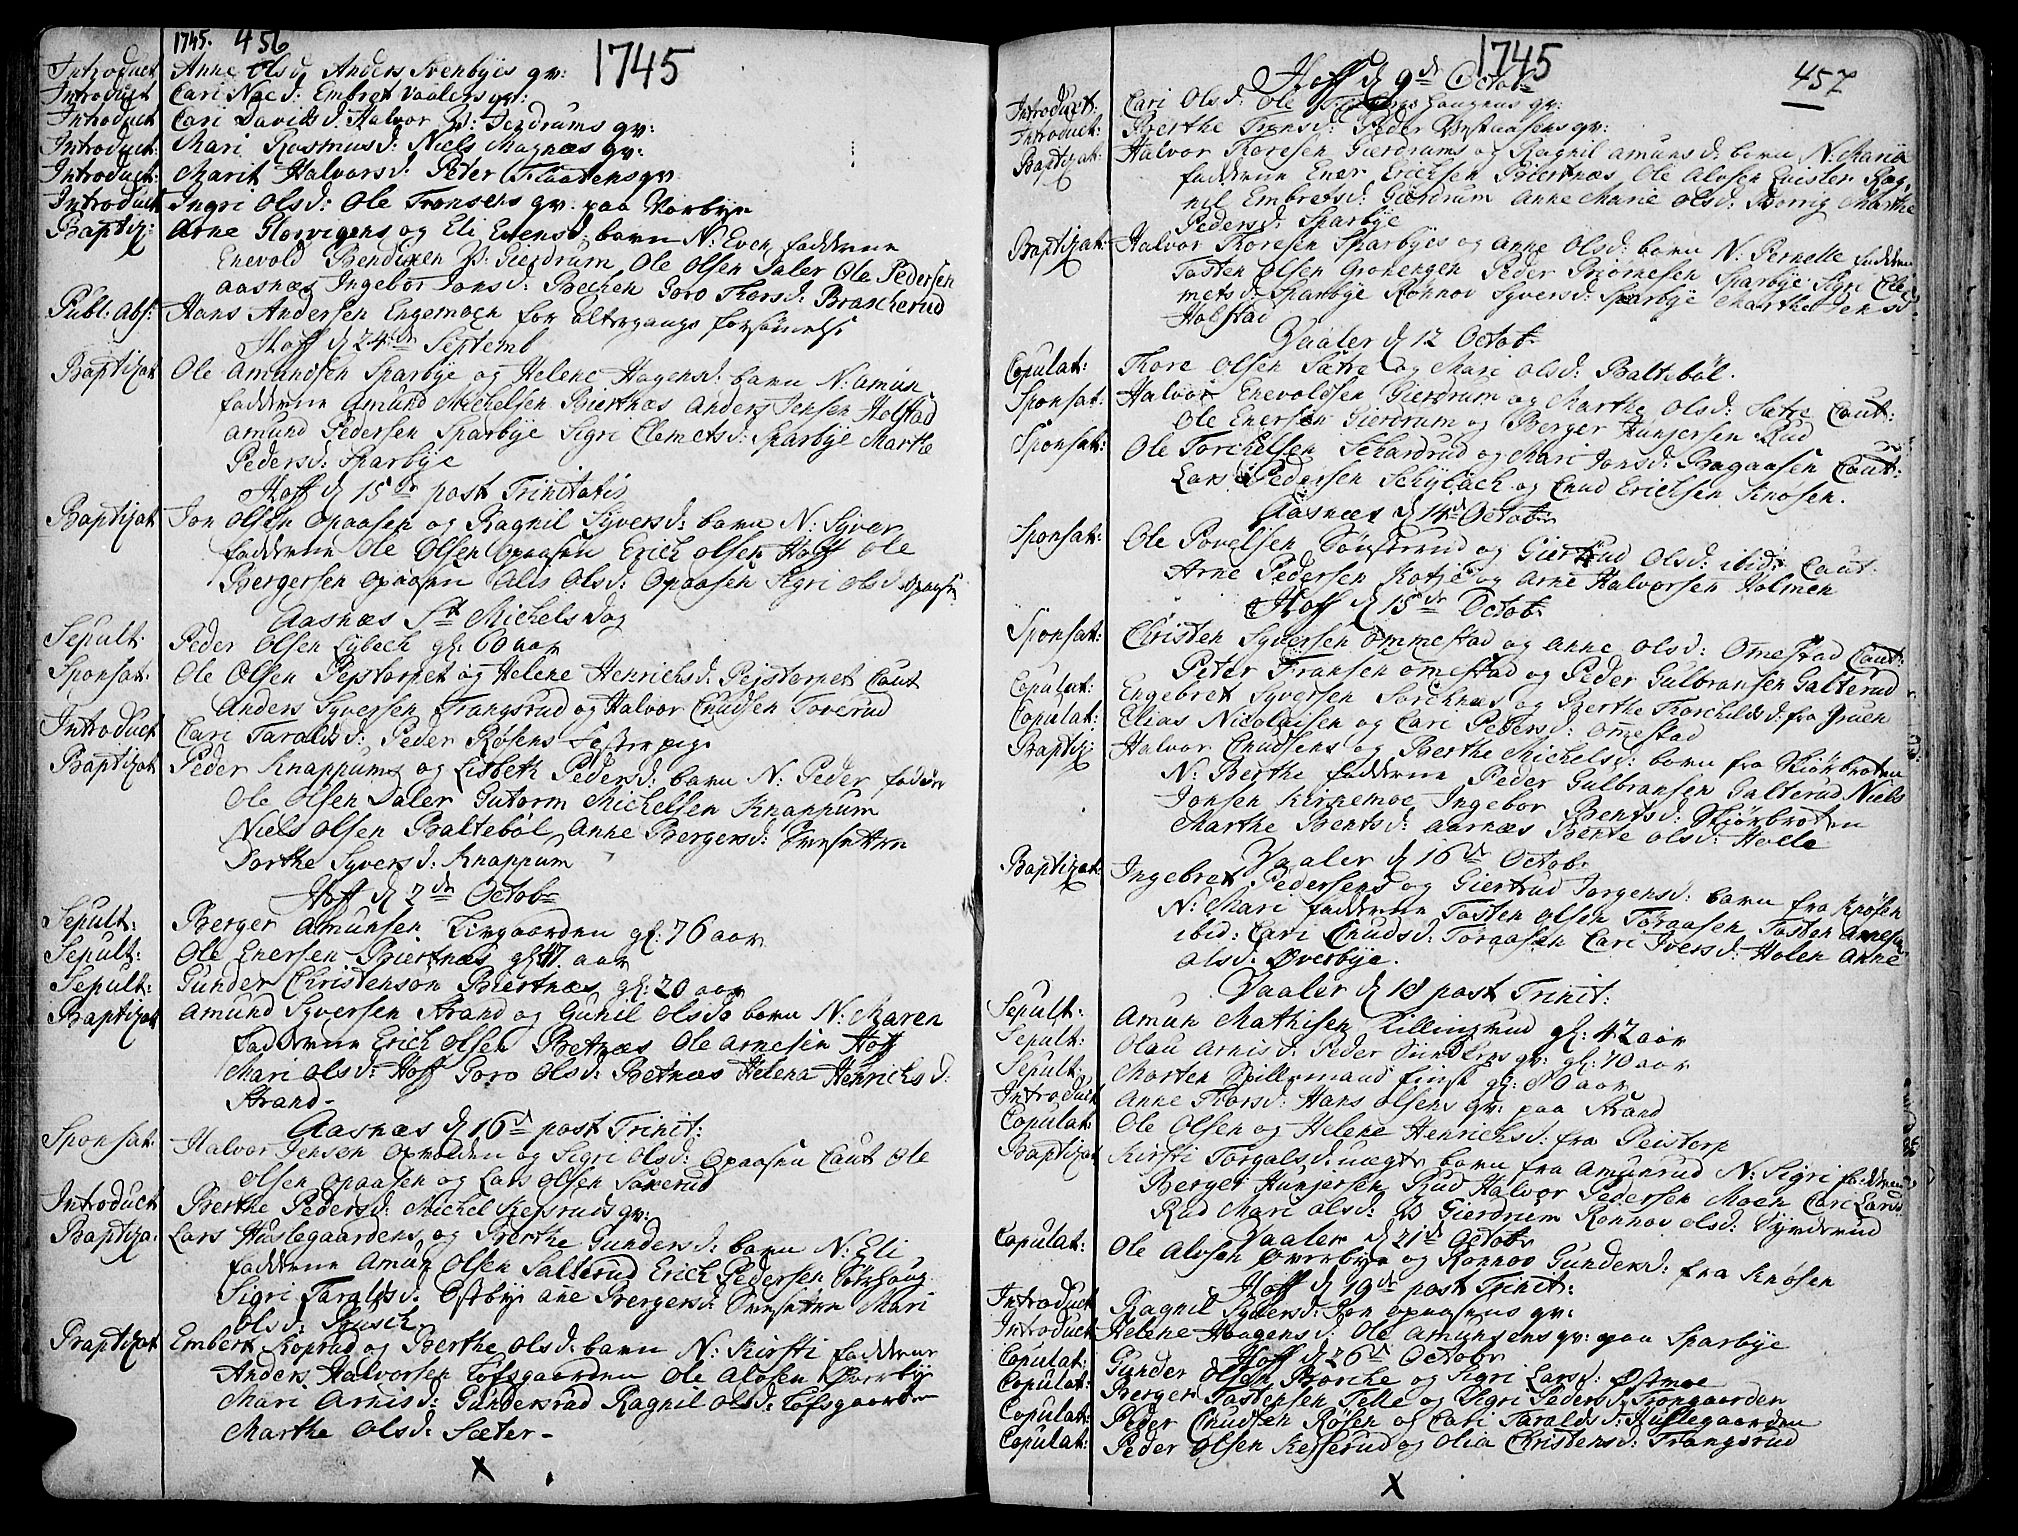 1745. 456
1745
Introduct Anne Olsd Anders Svenbyes qv:
Introduct Cari Nae d: Embret Vaalers qv:
Introduct Cari Davids d: Halvor P: Gierdrums qv:
Introduct: Mari Rasmusd: Niels Magnæs qv:
Introduct: Marit Halvorsd Peder Flaatens qv:
Introduct Ingri Olsd: Ole Tronsens qv: paa
Baptiz: Arne Glorvigens og Eli Evensd: barn N: Even fadderne
Enevold Bendixen P: Gierdrum Ole Olsen Daler Ole Pedersen
Aasnæs Ingebor Jonsd: Bechen Goro Thorsd: Brascherud
Publ: Abs: Hans Andersen Engemoen for altergangs forsømmelse
Hoff d 24de Septemb
Baptizat Ole Amundsen Sparbye og Helene Hagensd: barn N: Amun
fadderne Amund Michelsen Biertnæs Anders Jensen Holstad
Amund Pedersen Sparbye Sigri Clemetsd: Sparbye Marthe
Pedersd: Sparbye
Hoff d 15de post Trinitatis
Baptizat Jon Olsen Opaasen og Ragnil Syversd: barn N: Syver
fadderne Ole Olsen Opaasen Erich Olsen Hoff Ole
Bergersen Opaasen Olsd: Opaasen Sigri Olsd Opaasen
Aasnæs St Michelsdag
Sepult: Peder Olsen Lybech gl: 60 aar
Sponsat: Ole Olsen Peistorpet og Helene Henrichsd: Peistorpet Caut
Anders Syversen Trangsrud og Halvor Cnudsen Toverud
Introduct Cari Taraldsd: Peder Røsens festerpige
Baptizat Peder Knappums og Lisbeth Pedersd: barn N: Peder faddere
Ole Olsen Daler Gutorm Michelsen Knappum
Niels Olsen Baltebøl Anne Bergersd: Svesætren
Dorthe Syversd: Knappum
Hoff d 2de Octobr
Sepult: Berger Amunsen Kirgaarden gl: 76 aar
Sepult: Ole Enersen Biertnæs gl: 47 aar
Sepult: Gunder Christenson Biertnæs gl: 20 aar
Baptizat Amund Syversen Strand og Gunil Olsd: barn N: Maren
fadderne Erich Olsen Betnæs Ole Arnesen Hoff
Mari Olsd: Hoff Goro Olsd: Betnæs Helena Henrichsd:
Strand-
Aasnæs d 16de post Trinit:
Sponsat: Halvor Jensen Opvolden og Sigri Olsd: Opaasen Caut Ole
Olsen Opaasen og Lars Olsen
Introduct Berthe Pedersd: Michel Kessruds qv:
Baptiza: Lars Huslegaardens og Berthe Gundersd: barn N: Eli
fadderne Amun Olsen Salterud Erich Pedersen Sørhaug
Sigri Taraldsd: Østbye Ane Bergersd: Svesætren Mari
Olsd: Busch
Baptizat Embert Koprud og Berthe Olsd: barn N: Kirsti fadderne
Anders Halvorsen Lofsgaarden Ole Alosen Overbye
Mari Arnisd: Gundersrud Ragnil Olsd: Lofsgaarden
Marthe Olsd: Sæter-
X
1745 457
Hoff d 9de Octobr
Introduct: Cari Olsd: Ole Haugens qv:
Introduct: Berthe Tronsd: Peder Vestaasens qv:
Baptizat: Halvor Thoresen Gierdrums og Ragnil Amunsd: barn N: Maria
fadderne Ener Erichsen Biertnæs Ole Alosen Qvisler Rag,
nil Embretsd: Gierdrum Anne Marie Olsd: Borrig Marthe
Pedersd: Sparbye
Baptizat Halvor Thoresen Sparbyes og Anne Olsd: barn N: Pernelle fadderne
Tosten Olsen Grohengen Peder Biørnesen Sparbye Sigri Cle
metsd: Sparbye Rønnov Syversd: Sparbye Marthe Jensd:
Holstad
Vaaler d 12 Octobr
Copulat: Thore Olsen Sætre og Mari Olsd: Baltebøl.
Sponsat: Halvor Enevoldsen Gierdrum og Marthe Olsd: Sætre Caut:
Ole Enersen Gierdrum og Berger Hunjersen Rud
Sponsat: Ole Torchelsen Schardrud og Mari Jonsd: Bagaasen Caut:
Lars Pedersen Schybach og Cnud Erichsen Knøsen.
Aasnæs d 14de Octobr
Sponsat: Ole Povelsen Sønsterud og Giertrud Olsd: ibid: Caut:
Arne Pedersen Kotje og Arne Halvorsen Holmen
Hoff d 15de Octobr
Sponsat: Christen Syversen Ommestad og Anne Olsd: Omestad Caut:
Peter Fransen Omestad og Peder Gulbransen Galterud
Copulat: Engebret Syversen Sorchnæs og Berthe Thorchildsd: fra Gruen
Copulat: Elias Nicolaisen og Cari Pedersd: Omestad
Baptiz: Halvor Cnudsens og Berthe Michelsd: barn fra Skiørbroten
N: Berthe fadderne Peder Gulbransen Galterud Niels
Jonsen Kirkemoe Ingebor Bentsd: Skiørbroten
Marthe Bentsd: Aarnæs Bente Olsd: Holle
Vaaler d 16de Octobr
Baptizat: Ingebret Pedersens og Giertrud Jorgensd: barn fra Knøsen
N: Mari fadderne Tosten Olsen Toraasen Tosten Arnesen
ibid: Cari Cnudsd: Toraasen Cari Iversd: Holen Anne
Olsd: Øverbye.
Vaaler d 18 post Trinit:
Sepult: Amun Mathisen Killingrud gl: 42 aar
Sepult: Olau Arnisd: Peder qv: gl: 70 aar
Sepult: Morten Spillemand finsk gl: 80 aar
Introduct Anne Thorsd: Hans Olsens qv: paa Strand
Copulat Ole Olsen og Helene Henrichsd: fra Peistorp
Baptizat Kirsti Torgalsd: uægte barn fra Amunrud N: Sigri fadderne
Berger Hunjersen Rud Halvor Pedersen Moen Cari Larsd
Rud Mari Olsd: P Gierdrum Ronnov Olsd: Synderud
Vaaler d 21de Octobr
Copulat: Ole Alosen Overbye og Ronnov Gundersd: fra Knøsen
Hoff d 19de post Trinit:
Introduct Ragnil Syversd: Jon Opaasens qv:
Introduct Helene Haagensd: Ole Amunsens qv: paa Sparbye
Hoff d 26de Octobr
Copulat: Gunder Olsen Borche og Sigri Larsd: Østmoe
Copulat: Berger Tostensen Telle og Sigri Pedersd: Trongaarden
Copulat: Peder Cnudsen Røsen og Cari Taraldsd: Huslegaarden
Copulat: Peder Olsen Kesserud og Olia Christensd: Trangsrud
X